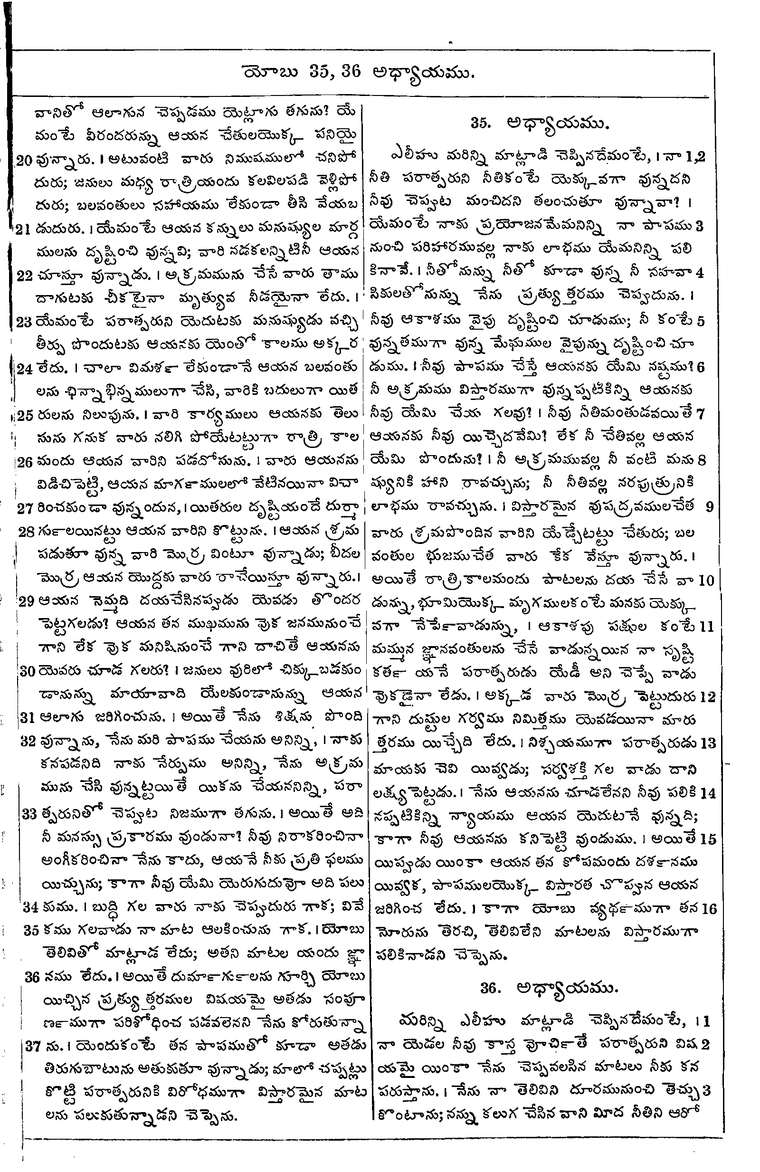 యోబు 35, 36 అధ్యాయము.
వానితో ఆలాగున చెప్పడము యెట్లాగు తగును? యే
మంటే వీరందరున్ను ఆయన చేతులయొక్క పనియై
20 వున్నారు. । అటువంటి వారు నిముషములో చనిపో
దురు; జనులు మధ్య రాత్రియందు కలవిలపడి వెళ్లిపో
దురు; బలవంతులు సహాయము లేకుండా తీసి వేయబ
21 డుదురు. । యేమంటే ఆయన కన్నులు మనుష్యుల మార్గ
ములను దృష్టించి వున్నవి; వారి నడకలన్నిటినీ ఆయన
22 చూస్తూ వున్నాడు. । అక్రమమును చేసే వారు తాము
దాగుటకు చీకటైనా మృత్యువ నీడయైనా లేదు. ।
23 యేమంటే పరాత్పరుని యెదుటకు మనుష్యుడు వచ్చి
తీర్పు పొందుటకు ఆయనకు యెంతో కాలము అక్కర
24 లేదు. । చాలా విమర్శ లేకుండానే ఆయన బలవంతు
లను భిన్నాభిన్నములుగా చేసి, వారికి బదులుగా యిత
25 రులను నిలుపును. । వారి కార్యములు ఆయనకు తెలు
సును గనుక వారు నలిగి పోయేటట్టుగా రాత్రి కాల
26 మందు ఆయన వారిని పడదోసును. । వారు ఆయనను
విడిచిపెట్టి, ఆయన మార్గములలో వేటినయినా విచా
27 రించకుండా వున్నందున, । యితరుల దృష్టియందే దుర్మా
28 ర్గులయినట్టు ఆయన వారిని కొట్టును. । ఆయన శ్రమ
పడుతూ వున్న వారి మొర్ర వింటూ వున్నాడు; బీదల
మొర్ర ఆయన యొద్దకు వారు రాచేయిస్తూ వున్నారు.।
29 ఆయన నెమ్మది దయచేసినప్పుడు యెవడు తొందర
పెట్టగలడు? ఆయన తన ముఖమును వుక జనమునుంచే
గాని లేక వుక మనిషినుంచే గాని దాచితే ఆయనను
30 యెవరు చూడ గలరు? । జనులు వురిలో చిక్కుబడకుం
డానున్ను మాయావాది యేలకుండానున్ను ఆయన
31 ఆలాగు జరిగించును. । అయితే నేను శిక్షను పొంది
32 వున్నాను, నేను మరి పాపము చేయను అనిన్ని, । నాకు
కనపడనిది నాకు నేర్పుము అనిన్ని, నేను అక్రమ
మును చేసి వున్నట్టయితే యికను చేయననిన్ని, పరా
33 త్పరునితో చెప్పుట నిజముగా తగును. । అయితే అది
నీ మనస్సు ప్రకారము వుండునా? నీవు నిరాకరించినా
అంగీకరించినా నేను కాదు, ఆయనే నీకు ప్రతి ఫలము
యిచ్చును; కాగా నీవు యేమి యెరుగుదువో అది పలు
34 కుము. । బుద్ధి గల వారు నాకు చెప్పుదురు గాక; వివే
35 కము గలవాడు నా మాట ఆలకించును గాక. । యోబు
తెలివితో మాట్లాడ లేదు; అతని మాటల యందు జ్ఞా
36 నము లేదు. । అయితే దుర్మార్గులను గూర్చి యోబు
యిచ్చిన ప్రత్యుత్తరముల విషయమై అతడు సంపూ
ర్ణముగా పరిశోధించ పడవలెనని నేను కోరుతున్నా
37 ను. । యెందుకంటే తన పాపముతో కూడా అతడు
తిరుగుబాటును అతుకుతూ వున్నాడు; మాలో చప్పట్లు
కొట్టి పరాత్పరునికి విరోధముగా విస్తారమైన మాట
లను పలుకుతున్నాడని చెప్పెను.
35. అధ్యాయము.
ఎలీహు మరిన్ని మాట్లాడి చెప్పినదేమంటే, । నా 1,2
నీతి పరాత్పరుని నీతికంటే యెక్కువగా వున్నదని
నీవు చెప్పుట మంచిదని తలంచుతూ వున్నావా? ।
యేమంటే నాకు ప్రయోజనమేమనిన్ని నా పాపము 3
నుంచి పరిహారమువల్ల నాకు లాభము యేమనిన్ని పలి
కినావే. । నీతోనున్ను నీతో కూడా వున్న నీ సహవా 4
సికులతోనున్ను నేను ప్రత్యుత్తరము చెప్పుదును. ।
నీవు ఆకాశము వైపు దృష్టించి చూడుము; నీ కంటే 5
వున్నతముగా వున్న మేఘముల వైపున్ను దృష్టించి చూ
డుము. । నీవు పాపము చేస్తే ఆయనకు యేమి నష్టము? 6
నీ అక్రమము విస్తారముగా వున్నప్పటికిన్ని ఆయనకు
నీవు యేమి చేయ గలవు? । నీవు నీతిమంతుడవయితే 7
ఆయనకు నీవు యిచ్చెదవేమి? లేక నీ చేతివల్ల ఆయన
యేమి పొందును? । నీ అక్రమమువల్ల నీ వంటి మను 8
ష్యునికి హాని రావచ్చును; నీ నీతివల్ల నరపుత్రునికి
లాభము రావచ్చును. । విస్తారమైన వుపద్రవములచేత 9
వారు శ్రమపొందిన వారిని యేడ్చేటట్టు చేతురు; బల
వంతుల భుజముచేత వారు కేక వేస్తూ వున్నారు. ।
అయితే రాత్రి కాలమందు పాటలను దయ చేసే వా 10
డున్ను, భూమియొక్క మృగములకంటే మనకు యెక్కు
వగా నేర్పేవాడున్ను, । ఆకాశపు పక్షుల కంటే 11
మమ్మున జ్ఞానవంతులను చేసే వాడున్నయిన నా సృష్టి
కర్త యనే పరాత్పరుడు యేడీ అని చెప్పే వాడు
వుకడైనా లేడు. । అక్కడ వారు మొర్ర పెట్టుదురు 12
గాని దుష్టుల గర్వము నిమిత్తము యెవడయినా మారు
త్తరము యిచ్చేది లేదు. । నిశ్చయముగా పరాత్పరుడు 13
మాయకు చెవి యివ్వడు; సర్వశక్తి గల వాడు దాని
లక్ష్యపెట్టడు. । నేను ఆయనను చూడలేనని నీవు పలికి 14
నప్పటికిన్ని న్యాయము ఆయన యెదుటనే వున్నది;
కాగా నీవు ఆయనను కనిపెట్టి వుండుము. । అయితే 15
యిప్పుడు యింకా ఆయన తన కోపమందు దర్శనము
యివ్వక, పాపములయొక్క విస్తారత చొప్పున ఆయన
జరిగించ లేదు. । కాగా యోబు వ్యర్థముగా తన 16
నోరును తెరచి, తెలివిలేని మాటలను విస్తారముగా
పలికినాడని చెప్పెను.
36. అధ్యాయము.
మరిన్ని ఎలీహు మాట్లాడి చెప్పినదేమంటే, । 1
నా యెడల నీవు కాస్త వోర్చితే పరాత్పరుని విష 2
యమై యింకా నేను చెప్పవలసిన మాటలు నీకు కన
పరుస్తాను. । నేను నా తెలివిని దూరమునుంచి తెచ్చు 3
కొంటాను; నన్ను కలుగ చేసిన వాని మీద నీతిని ఆరో